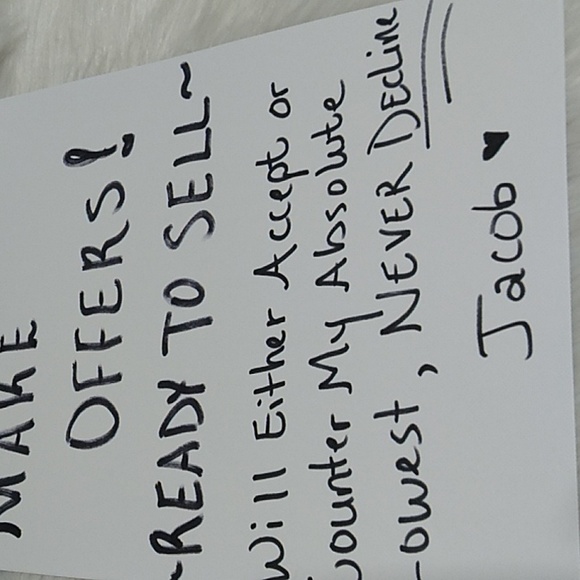 MAKE
OFFERS!
~READY TO SELL~
Will Either Accept or
Counter My Absolute
Lowest, NEVER DEcline
Jacob ♥